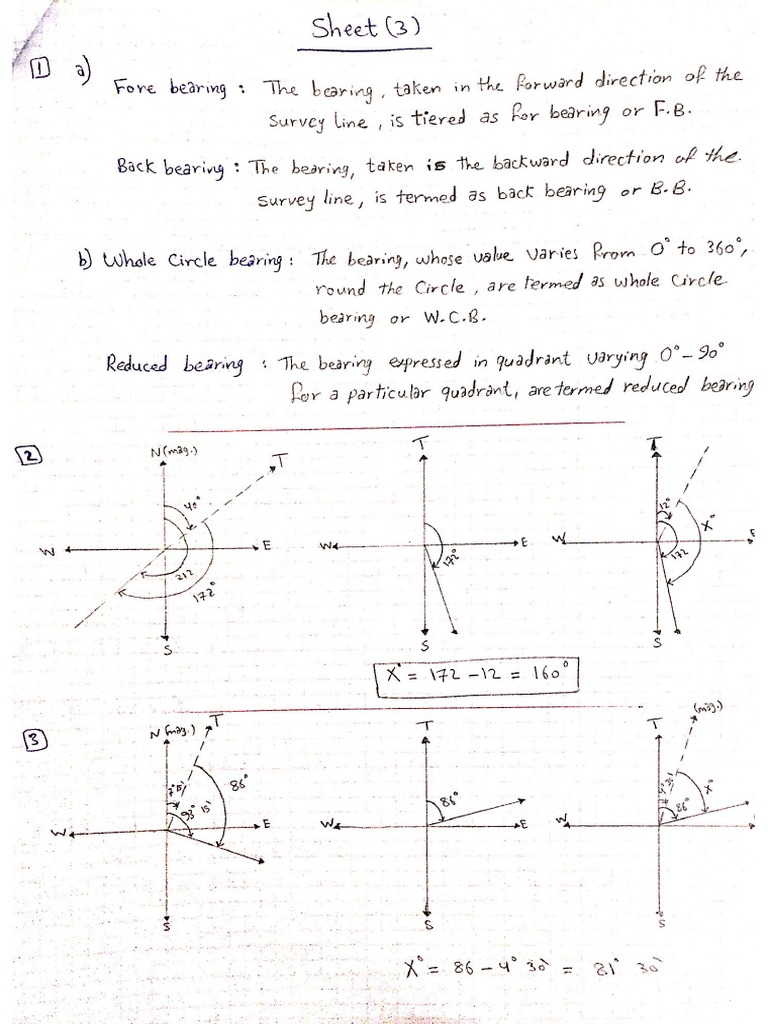 Sheet (3)
1 a)
Fore bearing : The bearing, taken in the forward direction of the
survey line, is tiered as for bearing or F.B.
Back bearing : The bearing, taken is the backward direction of the.
survey line, is termed as back bearing or B.B.
b) Whole Circle bearing : The bearing, whose value varies from 0° to 360°,
round the Circle, are termed as whole Circle
bearing or W.C.B.
Reduced bearing : The bearing expressed in quadrant varying 0° – 90°
for a particular quadrant, are termed reduced bearing
2
N (mag.) T 40° W E 212 172° S
T W E 172° S
T 12° X° W E 172 S
X° = 172 – 12 = 160°
3
N (mag.) T 7° 15' 86° 93° 15' W E S
T 86° W E S
T (mag.) 4° 30' X° 86° W S
X° = 86 – 4° 30' = 81° 30'